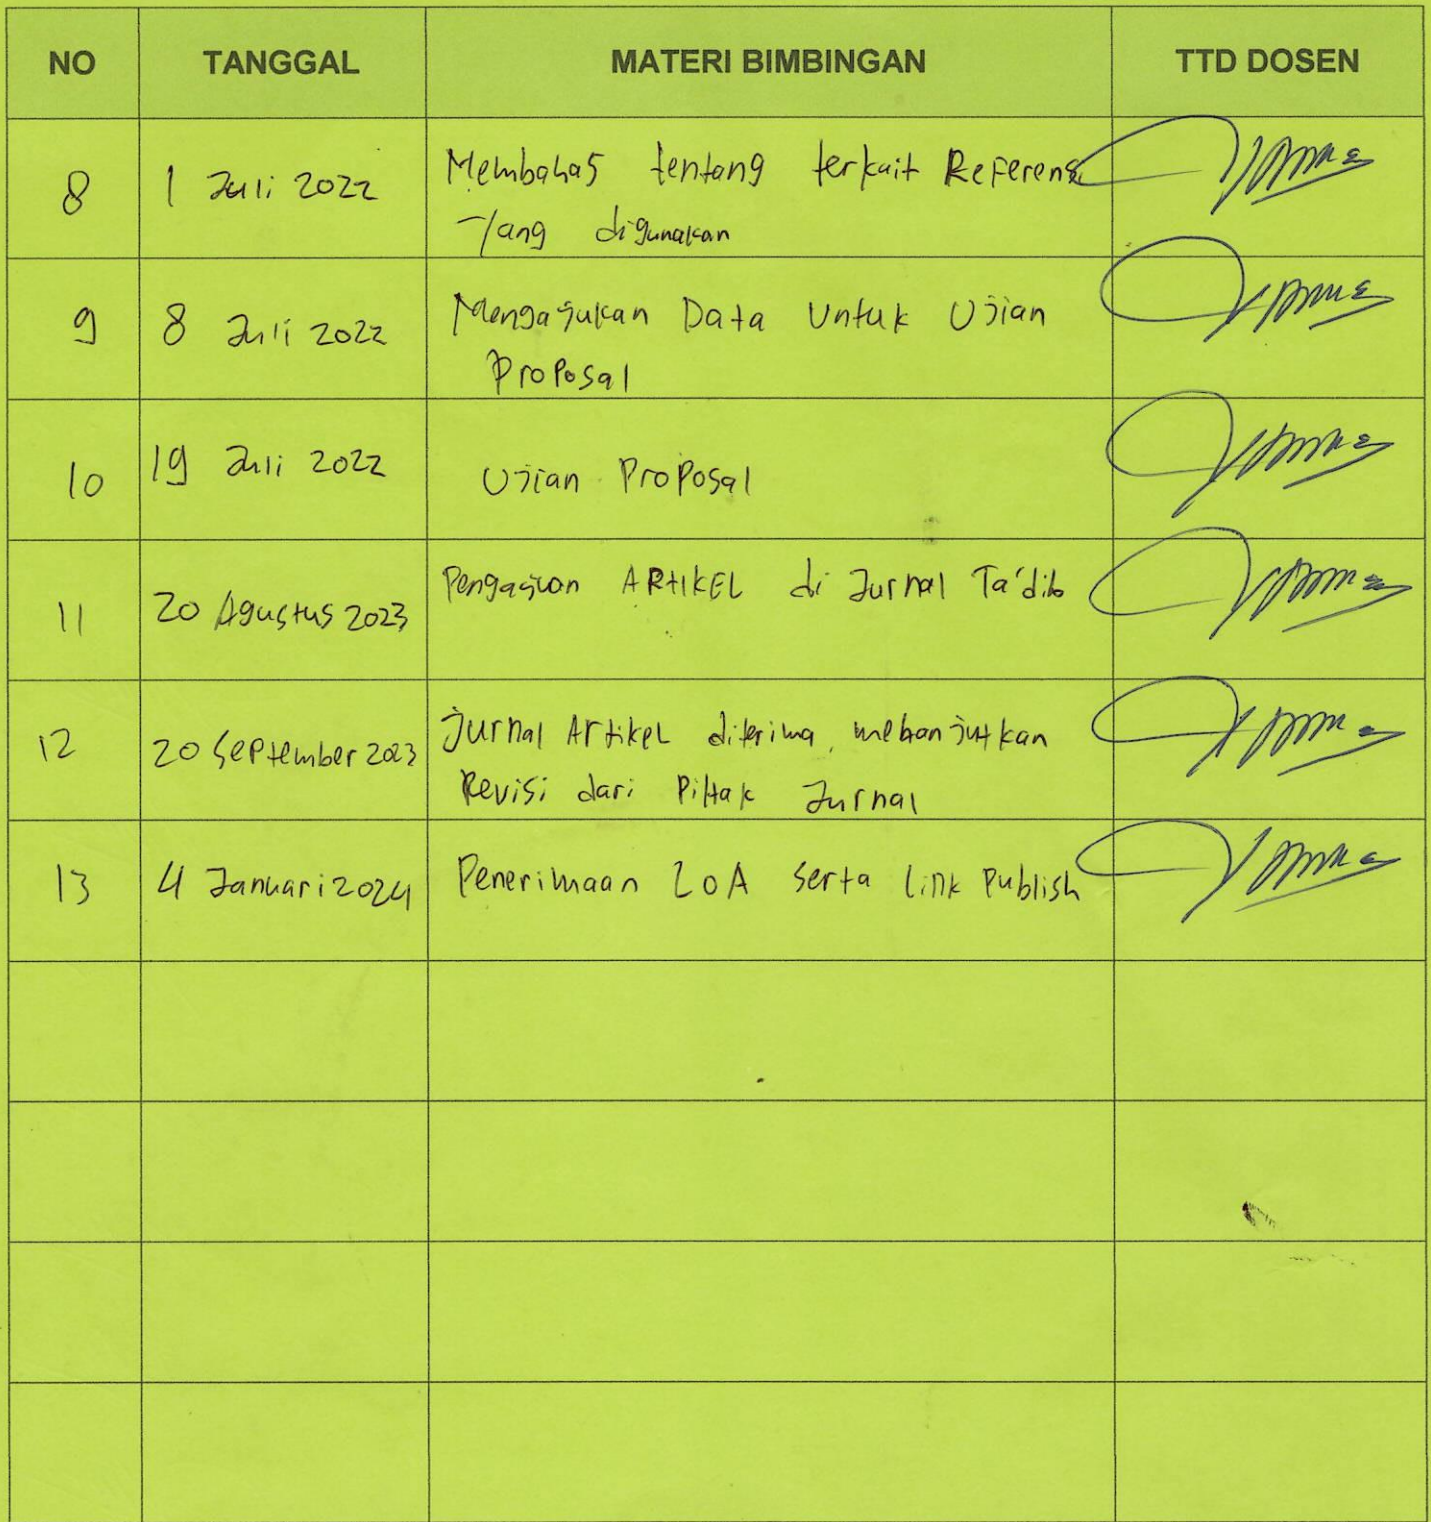 NO TANGGAL MATERI BIMBINGAN TTD DOSEN
8 1 Juli 2022 Membahas tentang terkait Referensi
Yang digunakan
9 8 Juli 2022 Mengajukan Data Untuk Ujian
Proposal
10 19 Juli 2022 Ujian Proposal
11 20 Agustus 2023 Pengajuan ARtIKEL di Jurnal Ta'dib
12 20 September 2023 Jurnal Artikel diterima, melanjutkan
Revisi dari Pihak Jurnal
13 4 Januari 2024 Penerimaan LoA serta Link Publish